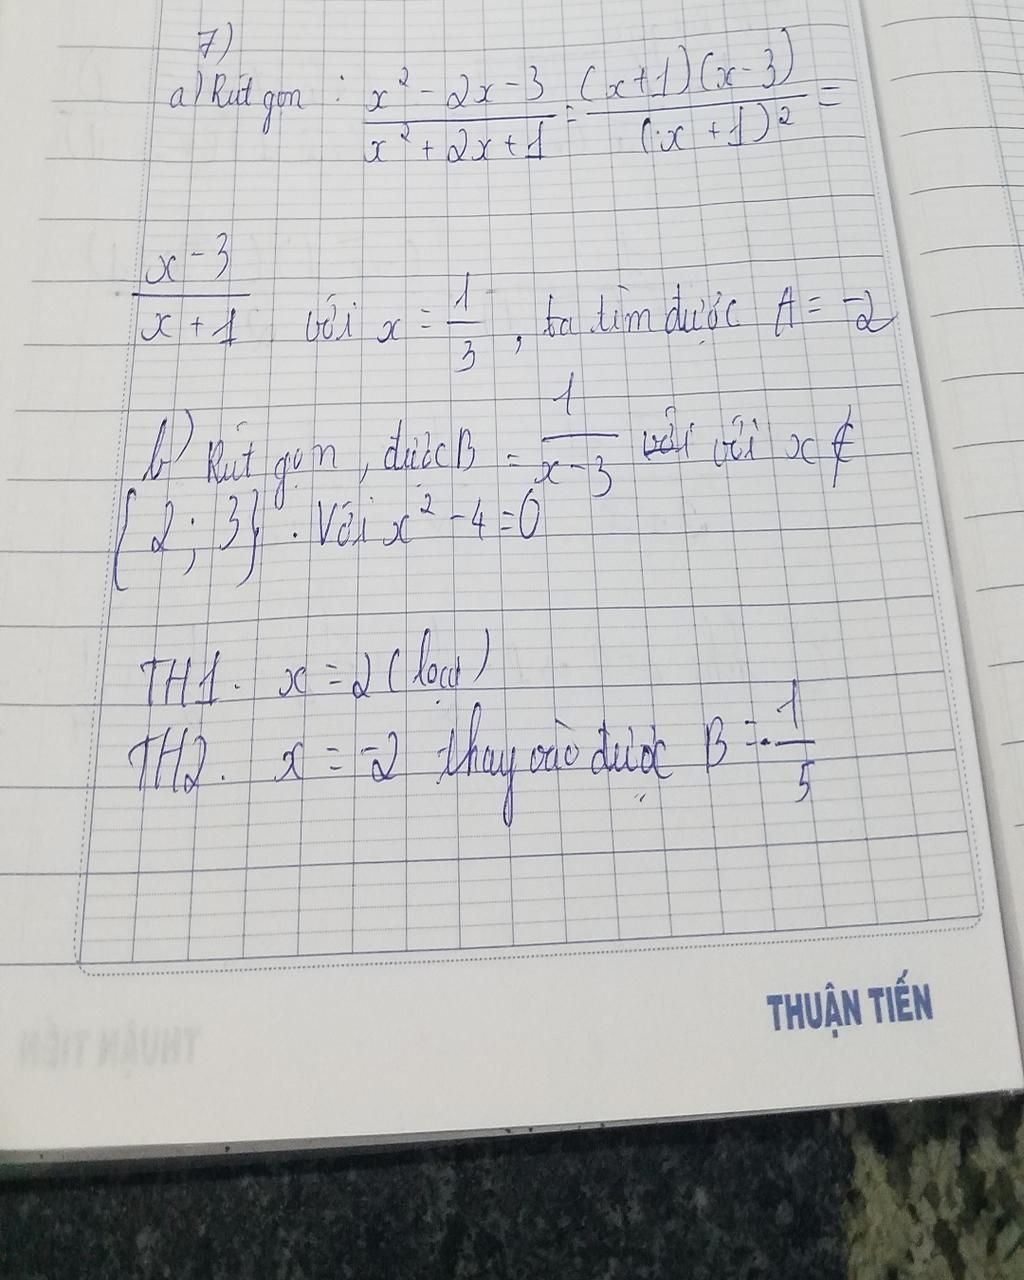 7)
a) Rút gọn : x² - 2x - 3 / x² + 2x + 1 = (x+1)(x-3) / (x+1)² =
x - 3 / x + 1 với x = 1/3, ta tìm được A = -2
b) Rút gọn, được B = 1 / x - 3 với với x ∉
{2; 3}. Với x² - 4 = 0
TH1. x = 2 (loại)
TH2. x = -2 thay vào được B = -1/5
THUẬN TIẾN